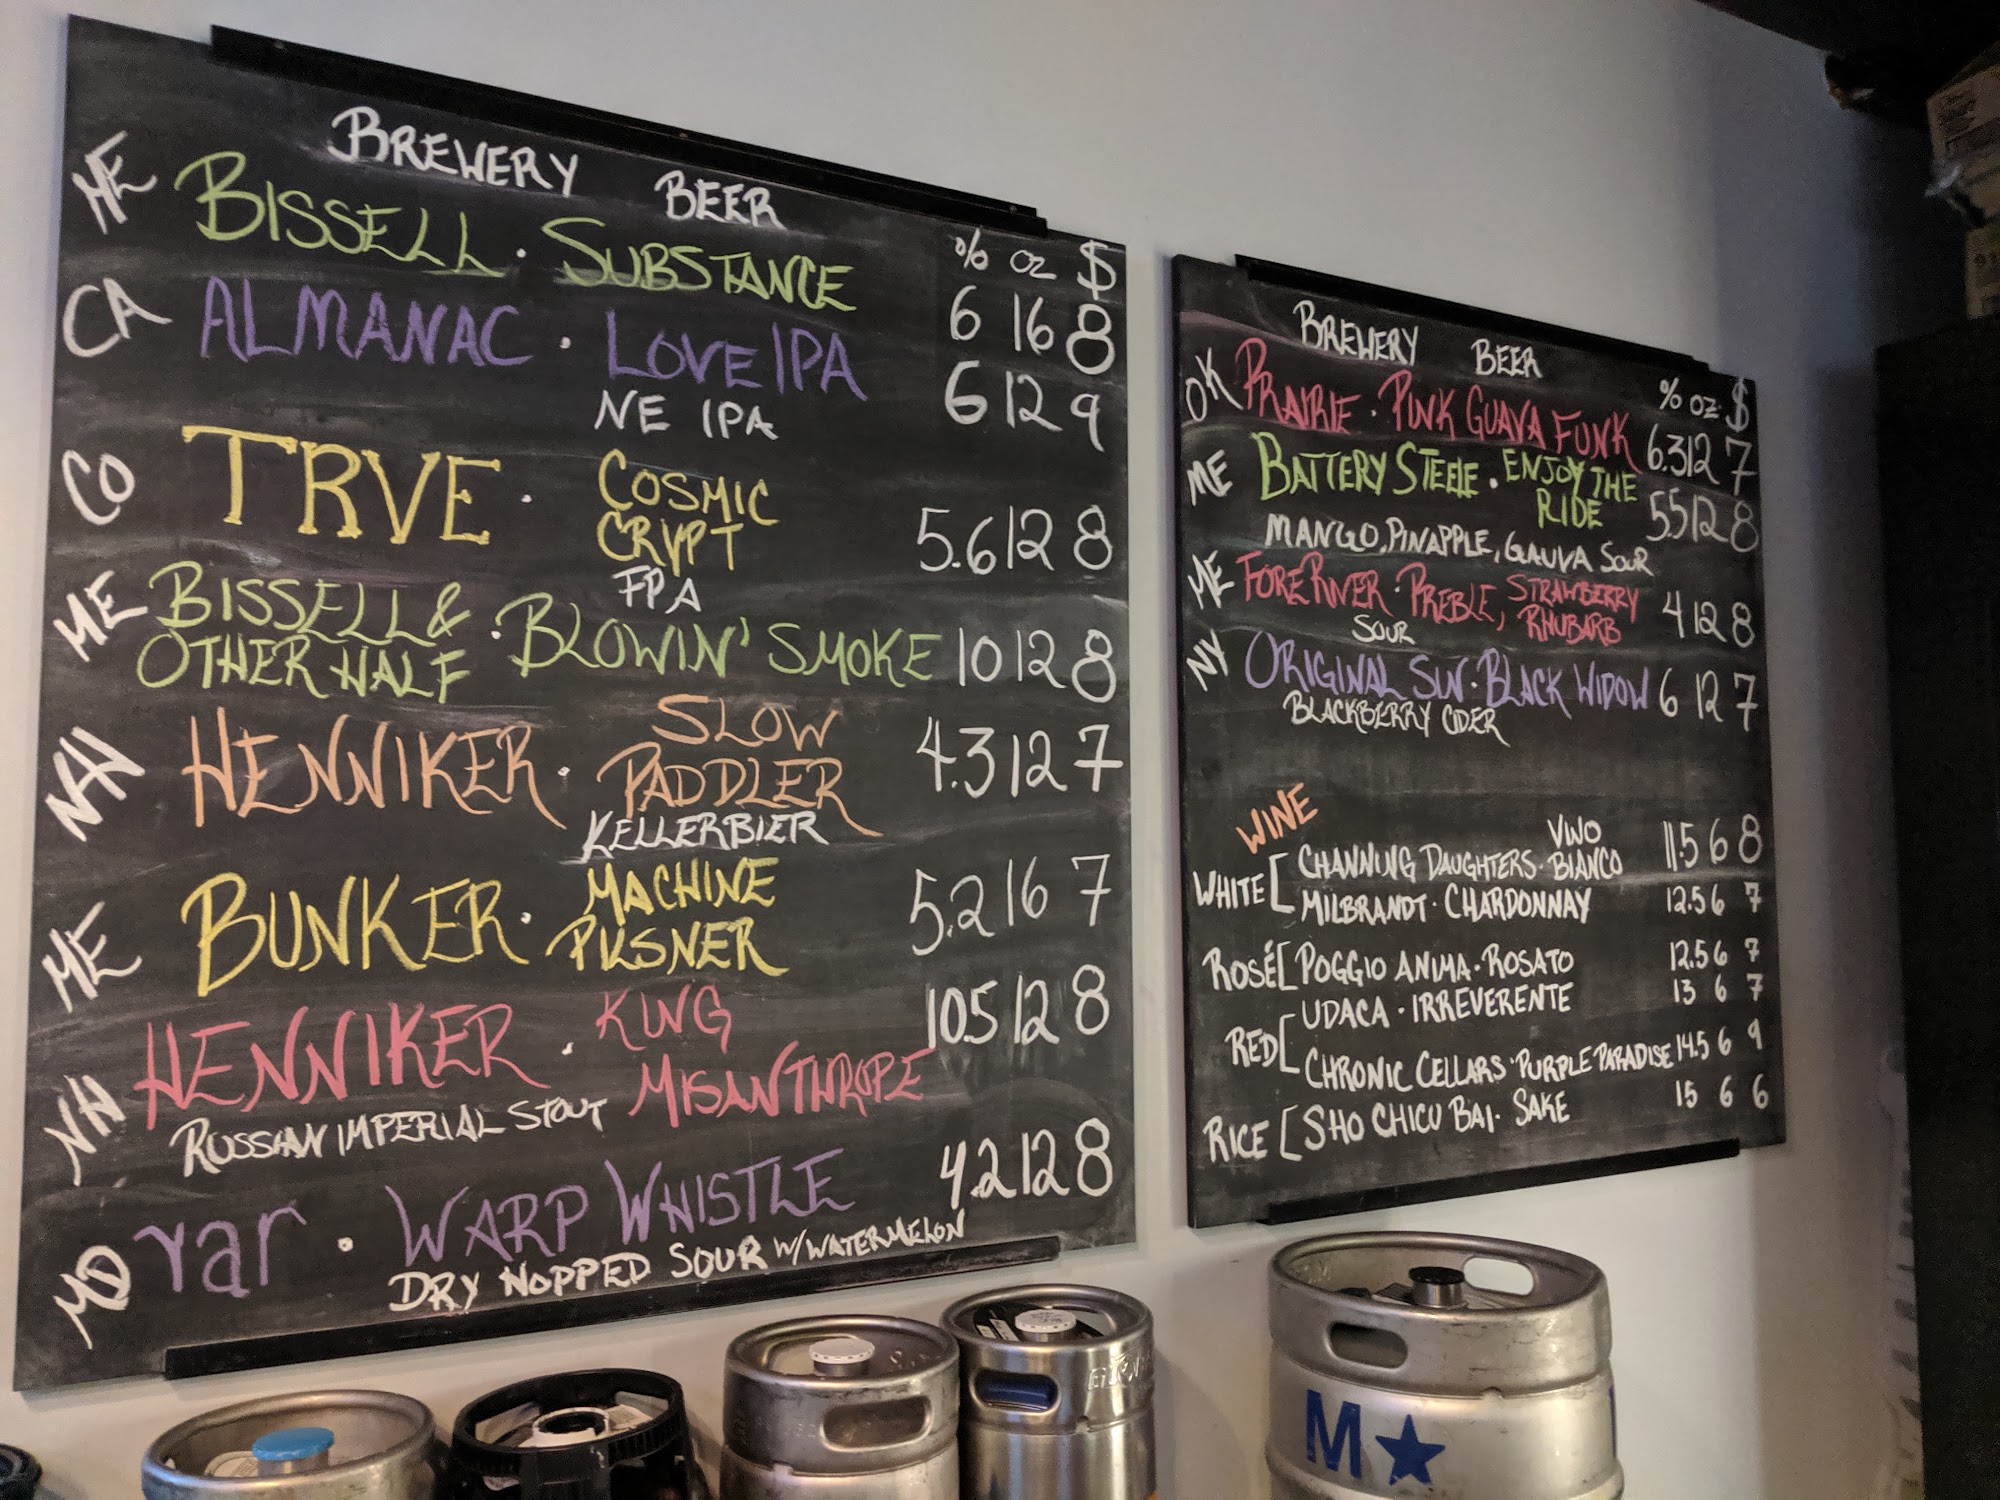 BREWERY BEER % OZ $
ME BISSELL · SUBSTANCE 6 16 8
CA ALMANAC · LOVE IPA 6 12 9
NE IPA
CO TRVE · COSMIC
CRYPT 5.6 12 8
FPA
ME BISSELL & · BLOWIN' SMOKE 10 12 8
OTHER HALF
NH HENNIKER · SLOW
PADDLER 4.3 12 7
KELLERBIER
ME BUNKER · MACHINE
PILSNER 5.2 16 7
NH HENNIKER · KING
MISANTHROPE 10.5 12 8
RUSSIAN IMPERIAL STOUT
MD rar · WARP WHISTLE 4.2 12 8
DRY HOPPED SOUR W/WATERMELON
BREWERY BEER % OZ. $
OK PRAIRIE · PINK GUAVA FUNK 6.3 12 7
ME BATTERY STEELE · ENJOY THE
RIDE 5.5 12 8
MANGO, PINAPPLE, GAUVA SOUR
ME FORE RIVER · PREBLE, STRAWBERRY
RHUBARB 4 12 8
SOUR
NY ORIGINAL SIN · BLACK WIDOW 6 12 7
BLACKBERRY CIDER
WINE
WHITE [ CHANNING DAUGHTERS · VINO
BIANCO 11.5 6 8
MILBRANDT · CHARDONNAY 12.5 6 7
ROSÉ [ POGGIO ANIMA · ROSATO 12.5 6 7
RED [ UDACA · IRREVERENTE 13 6 7
CHRONIC CELLARS · PURPLE PARADISE 14.5 6 9
RICE [ SHO CHICU BAI · SAKE 15 6 6
M★